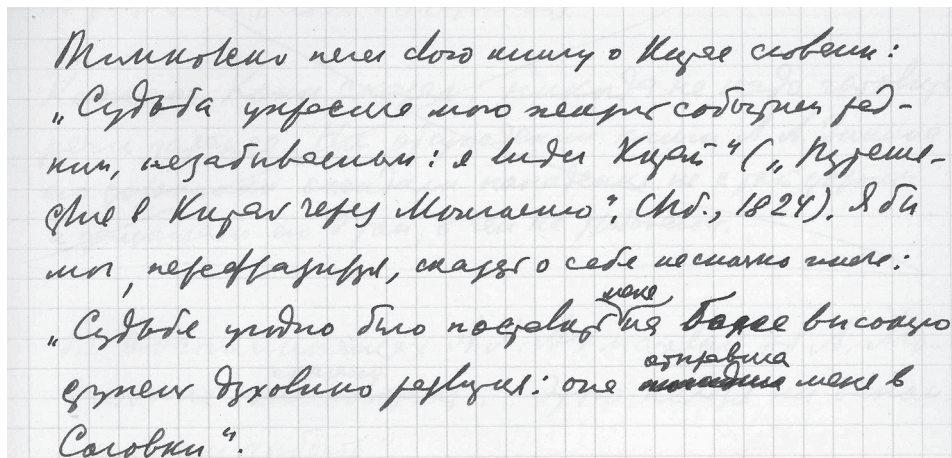 Тимковский начал свою книгу о Китае словами:
„Судьба украсила мою жизнь событием ред-
ким, незабываемым: я видел Китай“ („Путеше-
ствие в Китай через Монголию“, СПб., 1824). Я бы
мог, перефразируя, сказать о себе несколько иначе:
„Судьбе угодно было поставить меня на более высокую
ступень духовного развития: она отправила меня в
Соловки“.